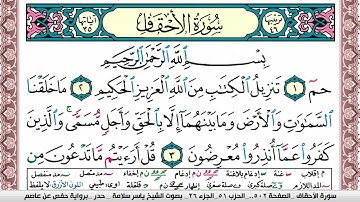 سُورَةُ الأَحْقَافِ
بِسْمِ اللَّهِ الرَّحْمَٰنِ الرَّحِيمِ
حمٓ ١ تَنزِيلُ ٱلْكِتَٰبِ مِنَ ٱللَّهِ ٱلْعَزِيزِ ٱلْحَكِيمِ ٢ مَا خَلَقْنَا
ٱلسَّمَٰوَٰتِ وَٱلْأَرْضَ وَمَا بَيْنَهُمَآ إِلَّا بِٱلْحَقِّ وَأَجَلٍ مُّسَمًّى وَٱلَّذِينَ
كَفَرُوا۟ عَمَّآ أُنذِرُوا۟ مُعْرِضُونَ ٣ قُلْ أَرَءَيْتُم مَّا تَدْعُونَ مِن
سورة الأحقاف، الصفحة ٥٠٢، الحزب ٥١، الجزء ٢٦، بصوت الشيخ ياسر سلامة، حدر، برواية حفص عن عاصم